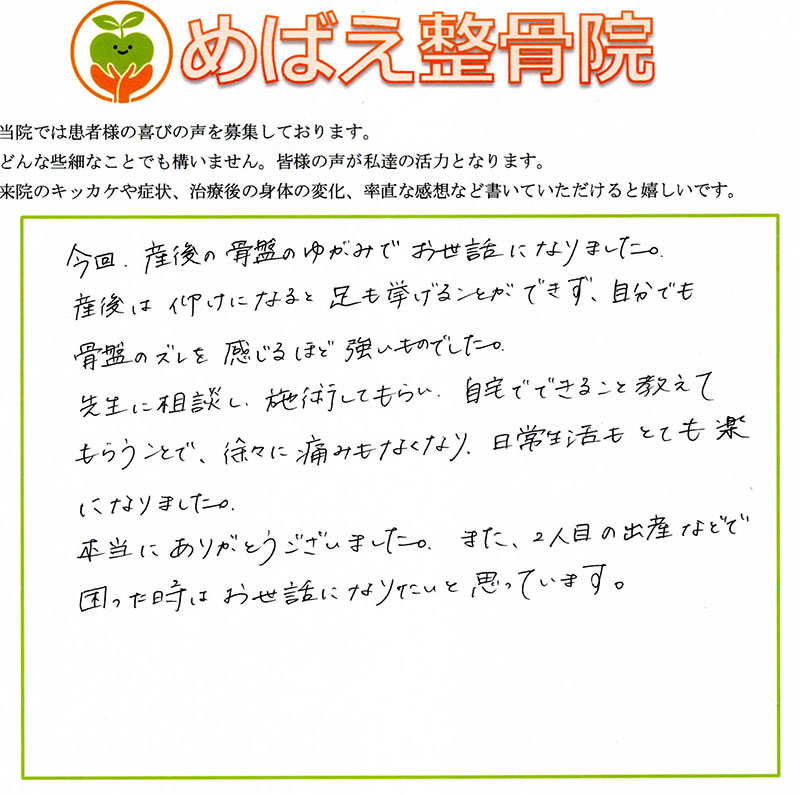 めばえ整骨院
当院では患者様の喜びの声を募集しております。
どんな些細なことでも構いません。皆様の声が私達の活力となります。
来院のキッカケや症状、治療後の身体の変化、率直な感想など書いていただけると嬉しいです。
今回、産後の骨盤のゆがみでお世話になりました。
産後は仰けになると足も挙げることができず、自分でも
骨盤のズレを感じるほど強いものでした。
先生に相談し、施術してもらい、自宅でできること教えて
もらうことで、徐々に痛みもなくなり、日常生活もとても楽
になりました。
本当にありがとうございました。また、2人目の出産などで
困った時はお世話になりたいと思っています。